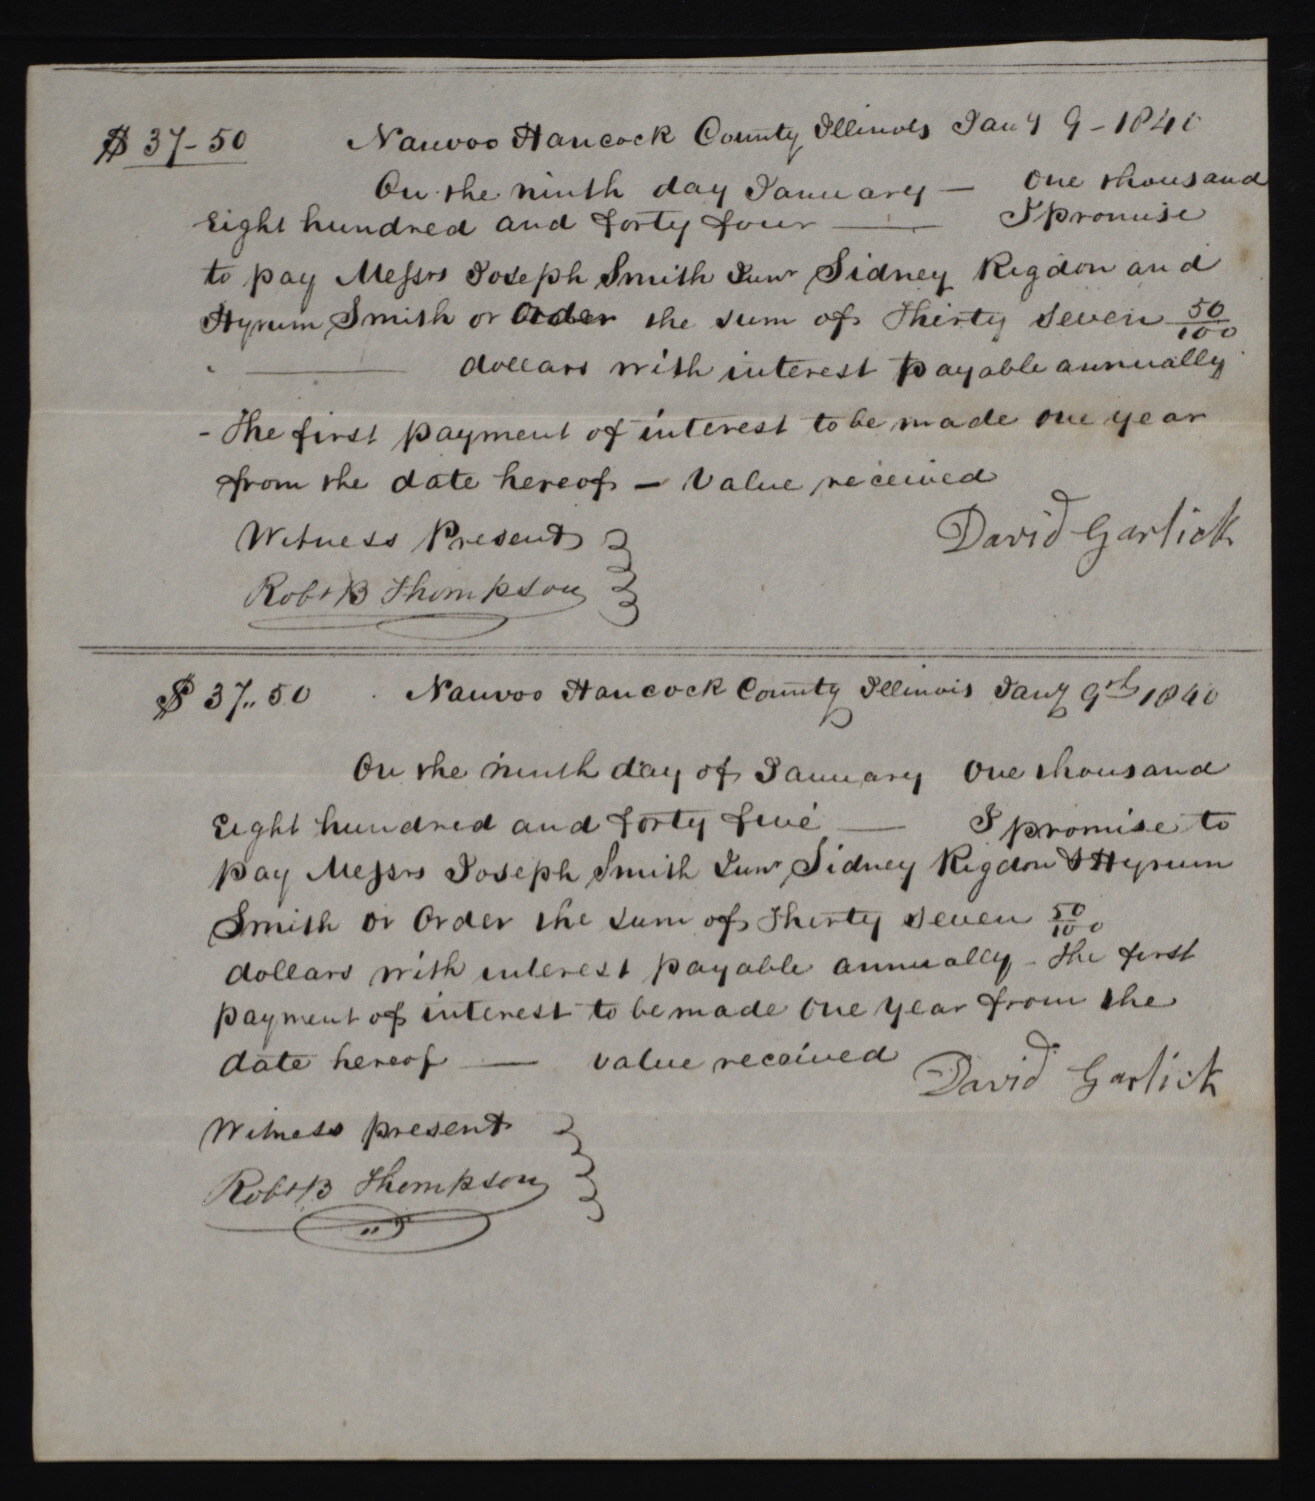 $ 37-50 Nauvoo Hancock County Illinois Jany 9 - 1840
On the ninth day January — One thousand
Eight hundred and forty four — I promise
to pay Messrs Joseph Smith Junr Sidney Rigdon and
Hyrum Smith or Order the sum of Thirty seven 50/100
— dollars with interest payable annually
- The first payment of interest to be made one year
from the date hereof — Value received
David Garlick
Witness Present
Robt B Thompson
$ 37..50 Nauvoo Hancock County Illinois Jany 9th 1840
On the ninth day of January One thousand
Eight hundred and forty five — I promise to
pay Messrs Joseph Smith Junr Sidney Rigdon & Hyrum
Smith or Order the sum of Thirty seven 50/100
dollars with interest payable annually - The first
payment of interest to be made One year from the
date hereof — value received
David Garlick
Witness present
Robt B Thompson